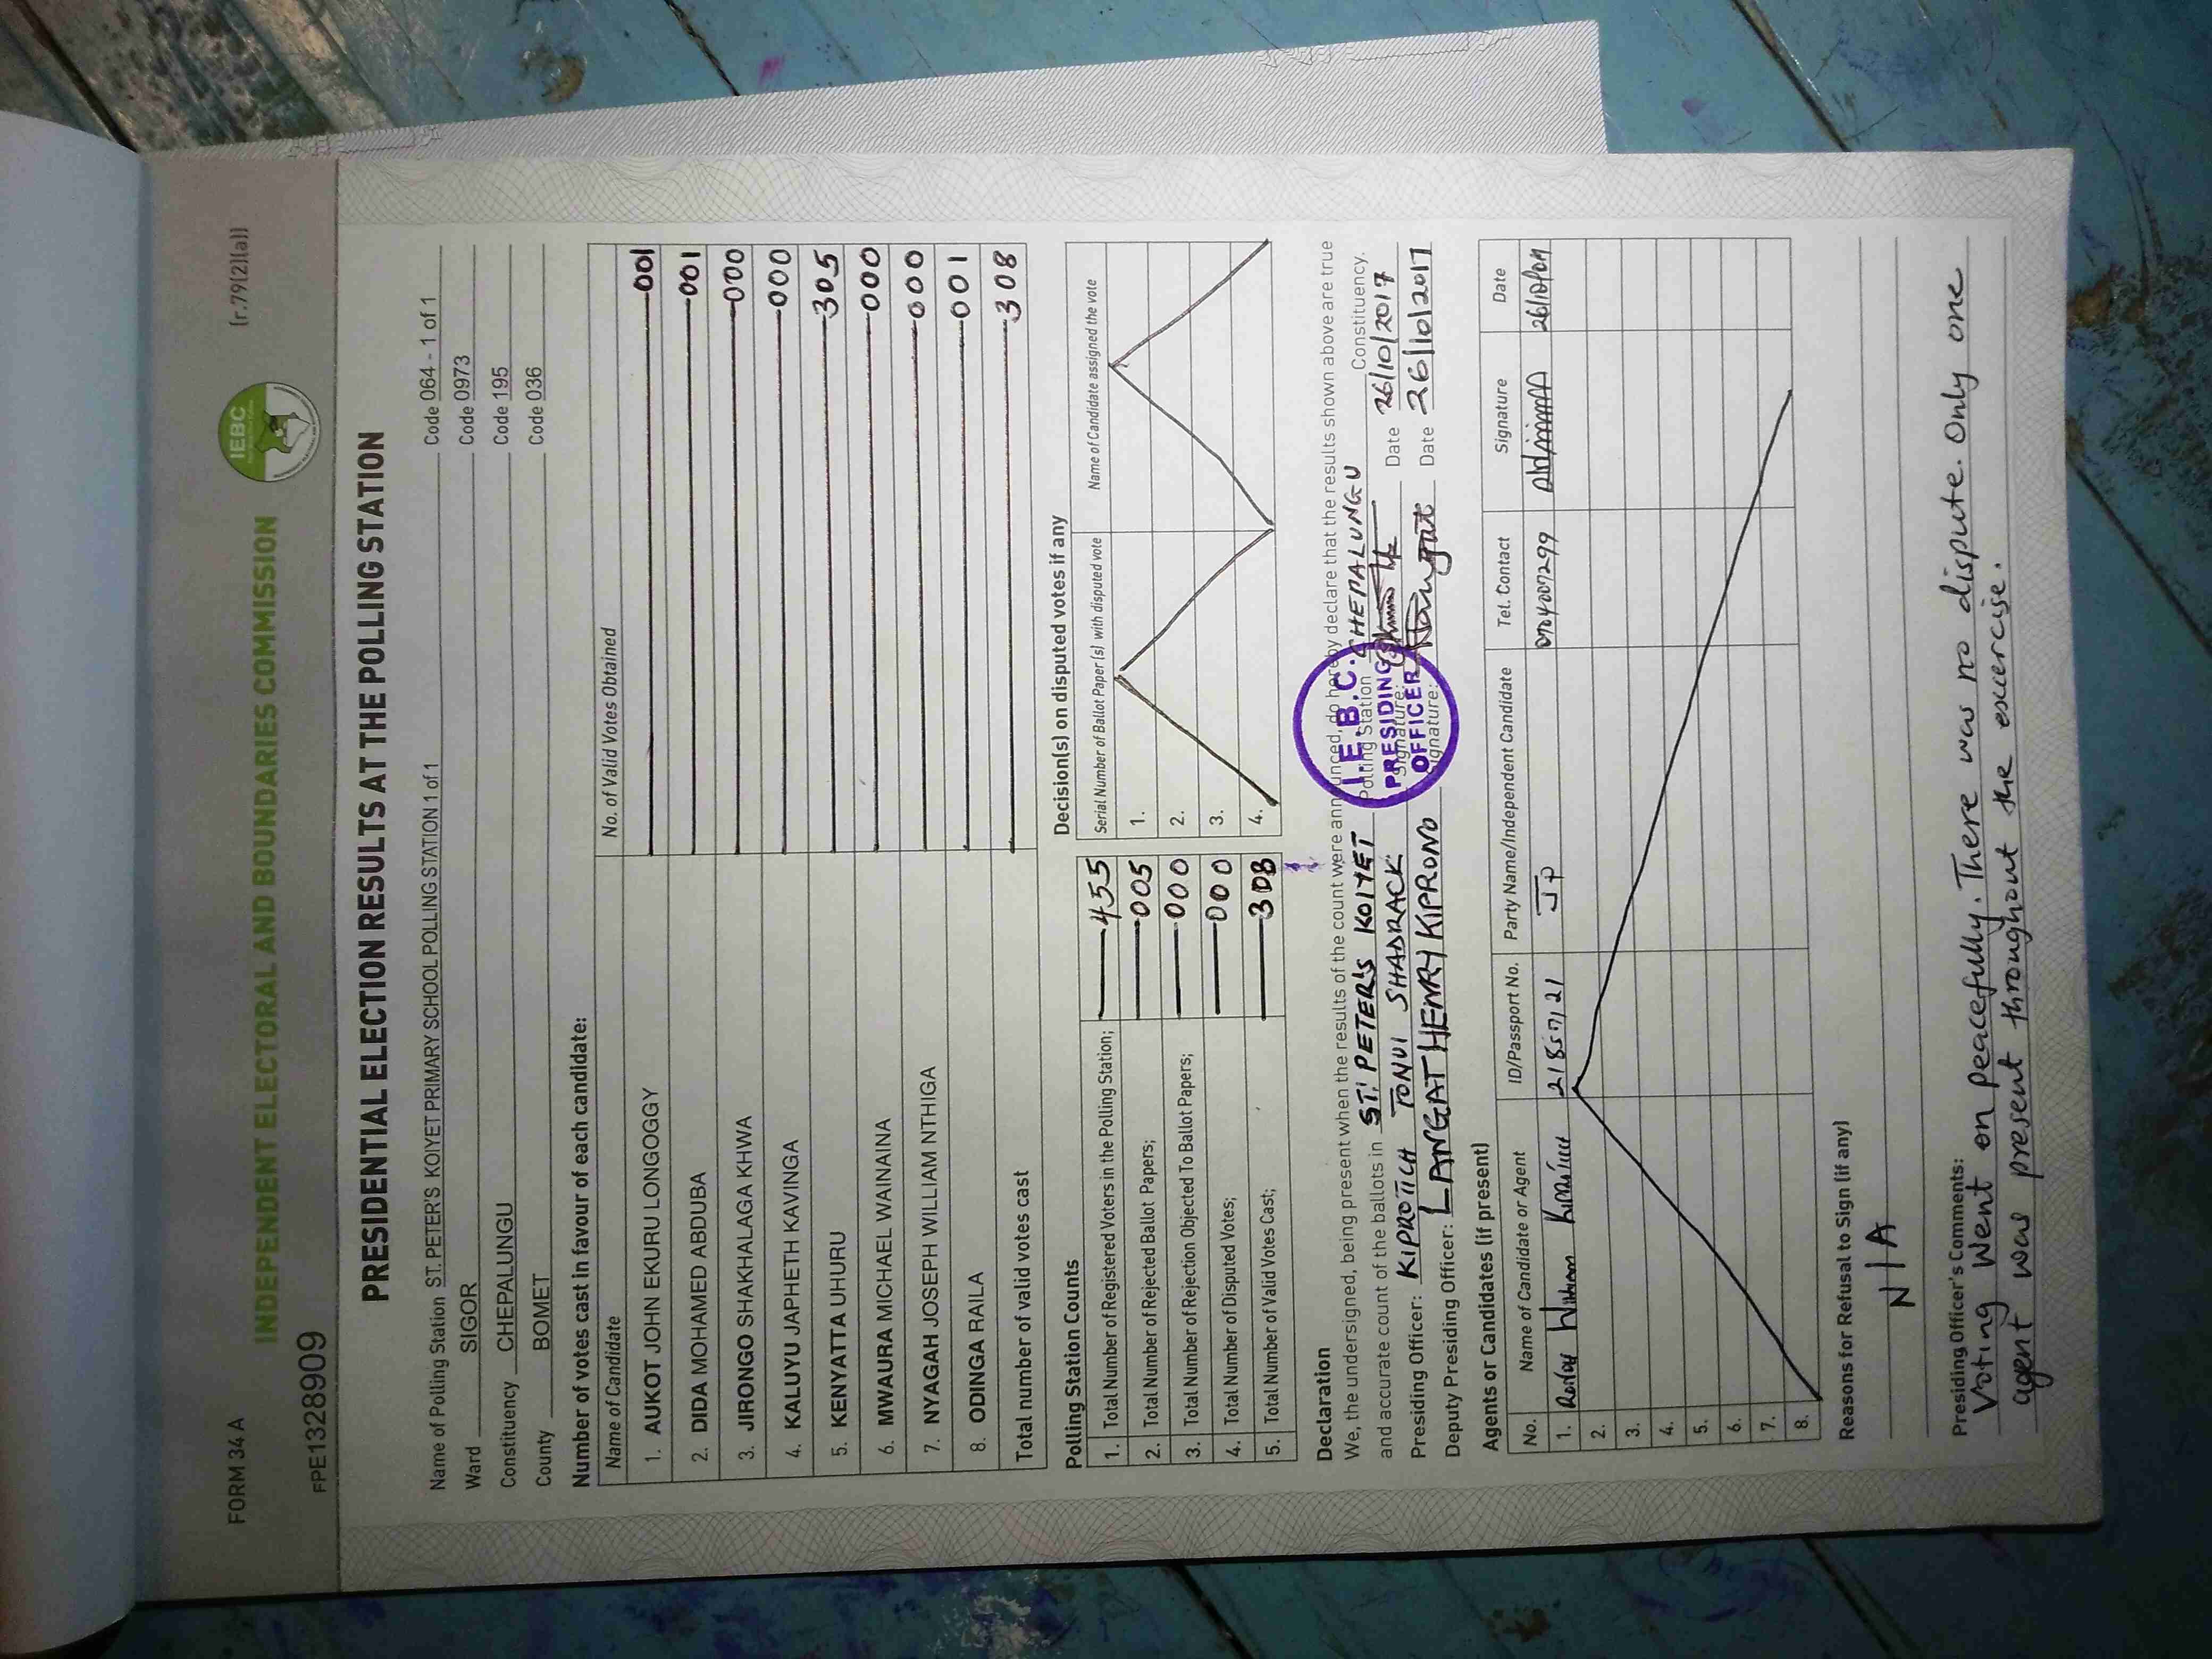 FORM 34 A
(r.79(2)(a))
IEBC
INDEPENDENT ELECTORAL AND BOUNDARIES COMMISSION
FPE1328909
PRESIDENTIAL ELECTION RESULTS AT THE POLLING STATION
Name of Polling Station ST. PETER'S KOIYET PRIMARY SCHOOL POLLING STATION 1 of 1 Code 064 - 1 of 1
Ward SIGOR Code 0973
Constituency CHEPALUNGU Code 195
County BOMET Code 036
Number of votes cast in favour of each candidate:
Name of Candidate No. of Valid Votes Obtained
1. AUKOT JOHN EKURU LONGOGGY 001
2. DIDA MOHAMED ABDUBA 001
3. JIRONGO SHAKHALAGA KHWA 000
4. KALUYU JAPHETH KAVINGA 000
5. KENYATTA UHURU 305
6. MWAURA MICHAEL WAINAINA 000
7. NYAGAH JOSEPH WILLIAM NTHIGA 000
8. ODINGA RAILA 001
Total number of valid votes cast 308
Polling Station Counts
1. Total Number of Registered Voters in the Polling Station; 455
2. Total Number of Rejected Ballot Papers; 005
3. Total Number of Rejection Objected To Ballot Papers; 000
4. Total Number of Disputed Votes; 000
5. Total Number of Valid Votes Cast; 308
Decision(s) on disputed votes if any
Serial Number of Ballot Paper (s) with disputed vote Name of Candidate assigned the vote
1.
2.
3.
4.
Declaration
We, the undersigned, being present when the results of the count were announced, do hereby declare that the results shown above are true
and accurate count of the ballots in ST. PETERS KOIYET Polling Station CHEPALUNGU Constituency.
Presiding Officer: KIPROTICH TONUI SHADRACK Signature: Date 26/10/2017
Deputy Presiding Officer: LANGAT HENRY KIPRONO Signature: Date 26/10/2017
I.E.B.C.
PRESIDING
OFFICER
Agents or Candidates (if present)
No. Name of Candidate or Agent ID/Passport No. Party Name/Independent Candidate Tel. Contact Signature Date
1. 21857121 JP 0704007299
2.
3.
4.
5.
6.
7.
8.
Reasons for Refusal to Sign (if any)
N/A
Presiding Officer's Comments:
Voting went on peacefully. There was no dispute. Only one
agent was present throughout the exercise.